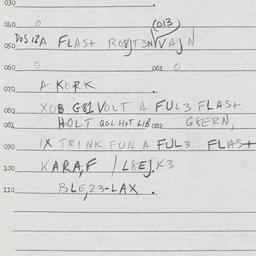 030
040 0 (013
DOSIZA FLASH ROBJT3N VAJN
050
060 0 061 0
070 A KORK
080 XOB G81VOLT A FUL3 FLASH
081 HOLT QGL HOT LIB 082 G8ERN,
090 IX TRINK FUN A FUL3 FLASH
100 KARAF / L8EJ. K3
110 BLE,23-LAX .